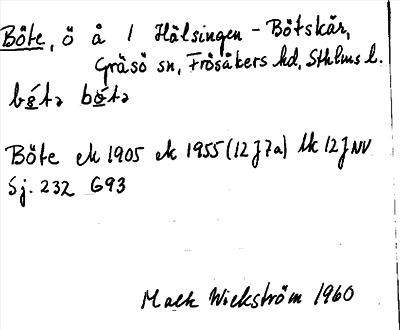 Böte, ö å 1 Hälsingen - Bötskär,
Gräsö sn, Frösåkers hd, Sthlms l.
bö́tə bö́tə
Böte ek 1905 ek 1955 (12 J 7a) lk 12 J NV
Sj. 232 G93
Wickström 1960